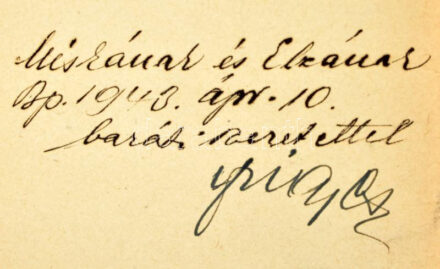 Miskának és Elzának
Bp. 1943. ápr. 10.
baráti szeretettel